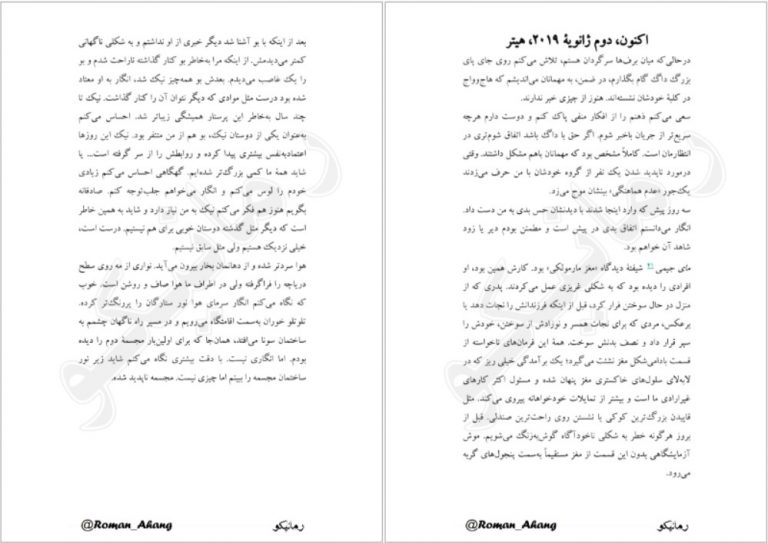 اکنون، دوم ژانویهٔ ۲۰۱۹، هیتر
درحالی‌که میان برف‌ها سرگردان هستم، تلاش می‌کنم روی جای پای
بزرگ داگ گام بگذارم، در ضمن، به مهمانان می‌اندیشم که هاج‌وواج
در کلبهٔ خودشان نشسته‌اند. هنوز از چیزی خبر ندارند.
سعی می‌کنم ذهنم را از افکار منفی پاک کنم و دوست دارم هرچه
سریع‌تر از جریان باخبر شوم. اگر حق با داگ باشد اتفاق شوم‌تری در
انتظارمان است. کاملاً مشخص بود که مهمانان باهم مشکل داشتند. وقتی
درمورد ناپدید شدن یک نفر از گروه خودشان با من حرف می‌زدند
یک‌جور «عدم هماهنگی» بینشان موج می‌زد.
سه روز پیش که وارد اینجا شدند با دیدنشان حس بدی به من دست داد.
انگار می‌دانستم اتفاق بدی در پیش است و مطمئن بودم دیر یا زود
شاهد آن خواهم بود.
مای جیمی ۲۱ شیفتهٔ دیدگاه «مغز مارمولکی» بود. کارش همین بود، او
افرادی را دیده بود که به شکلی غریزی عمل می‌کردند. پدری که از
منزل در حال سوختن فرار کرد، قبل از اینکه فرزندانش را نجات دهد یا
برعکس، مردی که برای نجات همسر و نوزادش از سوختن، خودش را
سپر قرار داد و نصف بدنش سوخت. همهٔ این فرمان‌های ناخواسته از
قسمت بادامی‌شکل مغز نشئت می‌گیرد؛ یک برآمدگی خیلی ریز که در
لابه‌لای سلول‌های خاکستری مغز پنهان شده و مسئول اکثر کارهای
غیرارادی ما است و بیشتر از تمایلات خودخواهانه پیروی می‌کند. مثل
قاپیدن بزرگ‌ترین کوکی یا نشستن روی راحت‌ترین صندلی. قبل از
بروز هرگونه خطر به شکلی ناخودآگاه گوش‌به‌زنگ می‌شویم. موش
آزمایشگاهی بدون این قسمت از مغز مستقیماً به‌سمت پنجول‌های گربه
می‌رود.
رمانیکو
@Roman_Ahang
بعد از اینکه با بو آشنا شد دیگر خبری از او نداشتم و به شکلی ناگهانی
کمتر می‌دیدمش. از اینکه مرا به‌خاطر بو کنار گذاشته ناراحت شدم و بو
را یک غاصب می‌دیدم. بعدش بو همه‌چیز نیک شد، انگار به او معتاد
شده بود درست مثل موادی که دیگر نتوان آن را کنار گذاشت. نیک تا
چند سال به‌خاطر این پرستار همیشگی زیباتر شد. احساس می‌کنم
به‌عنوان یکی از دوستان نیک، بو هم از من متنفر بود. نیک این روزها
اعتمادبه‌نفس بیشتری پیدا کرده و روابطش را از سر گرفته است... یا
شاید همهٔ ما کمی بزرگ‌تر شده‌ایم. گهگاهی احساس می‌کنم زیادی
خودم را لوس می‌کنم و انگار می‌خواهم جلب‌توجه کنم. صادقانه
بگویم هنوز هم فکر می‌کنم نیک به من نیاز دارد و شاید به همین خاطر
است که دیگر مثل گذشته دوستان خوبی برای هم نیستیم. درست است،
خیلی نزدیک هستیم ولی مثل سابق نیستیم.
هوا سردتر شده و از دهانمان بخار بیرون می‌آید. نواری از مه روی سطح
دریاچه را فراگرفته ولی در اطراف ما هوا صاف و روشن است. خوب
که نگاه می‌کنم انگار سرمای هوا نور ستارگان را پررنگ‌تر کرده.
تلوتلو خوران به‌سمت اقامتگاه می‌رویم و در مسیر راه ناگهان چشمم به
ساختمان سونا می‌افتد، همان‌جا که برای اولین‌بار مجسمهٔ دوم را دیده
بودم. اما انگاری نیست. با دقت بیشتری نگاه می‌کنم شاید زیر نور
ساختمان مجسمه را ببینم اما چیزی نیست. مجسمه ناپدید شده.
رمانیکو
@Roman_Ahang